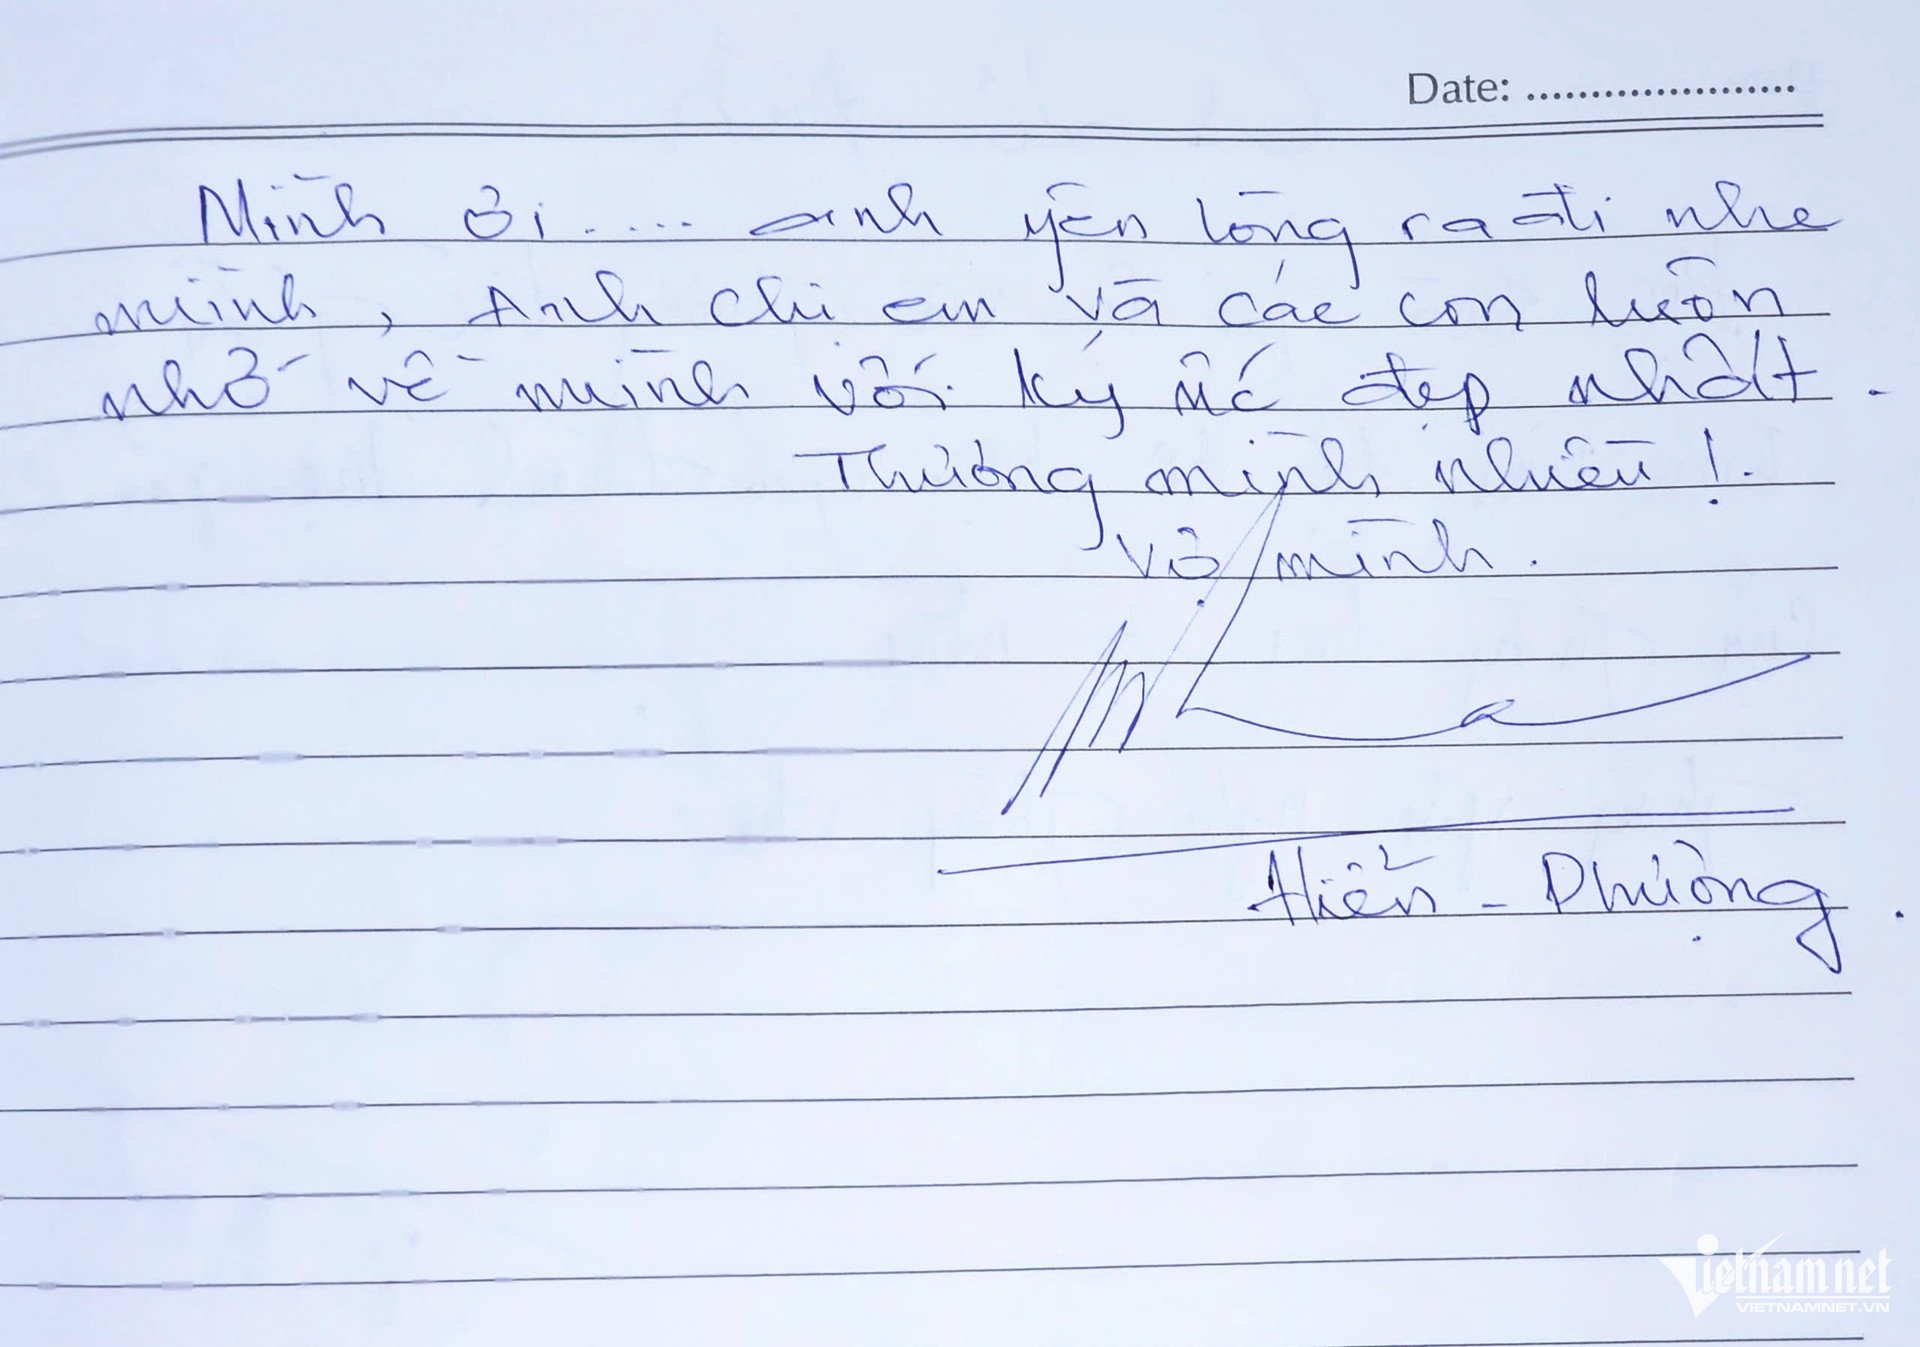 Date: .....................
Mình ơi..... anh yên lòng ra đi nhe
mình, Anh chị em và các con luôn
nhớ về mình với ký ức đẹp nhất.
Thương mình nhiều!.
Vợ mình.
Hiển - Phượng.
Vietnamnet
VIETNAMNET.VN